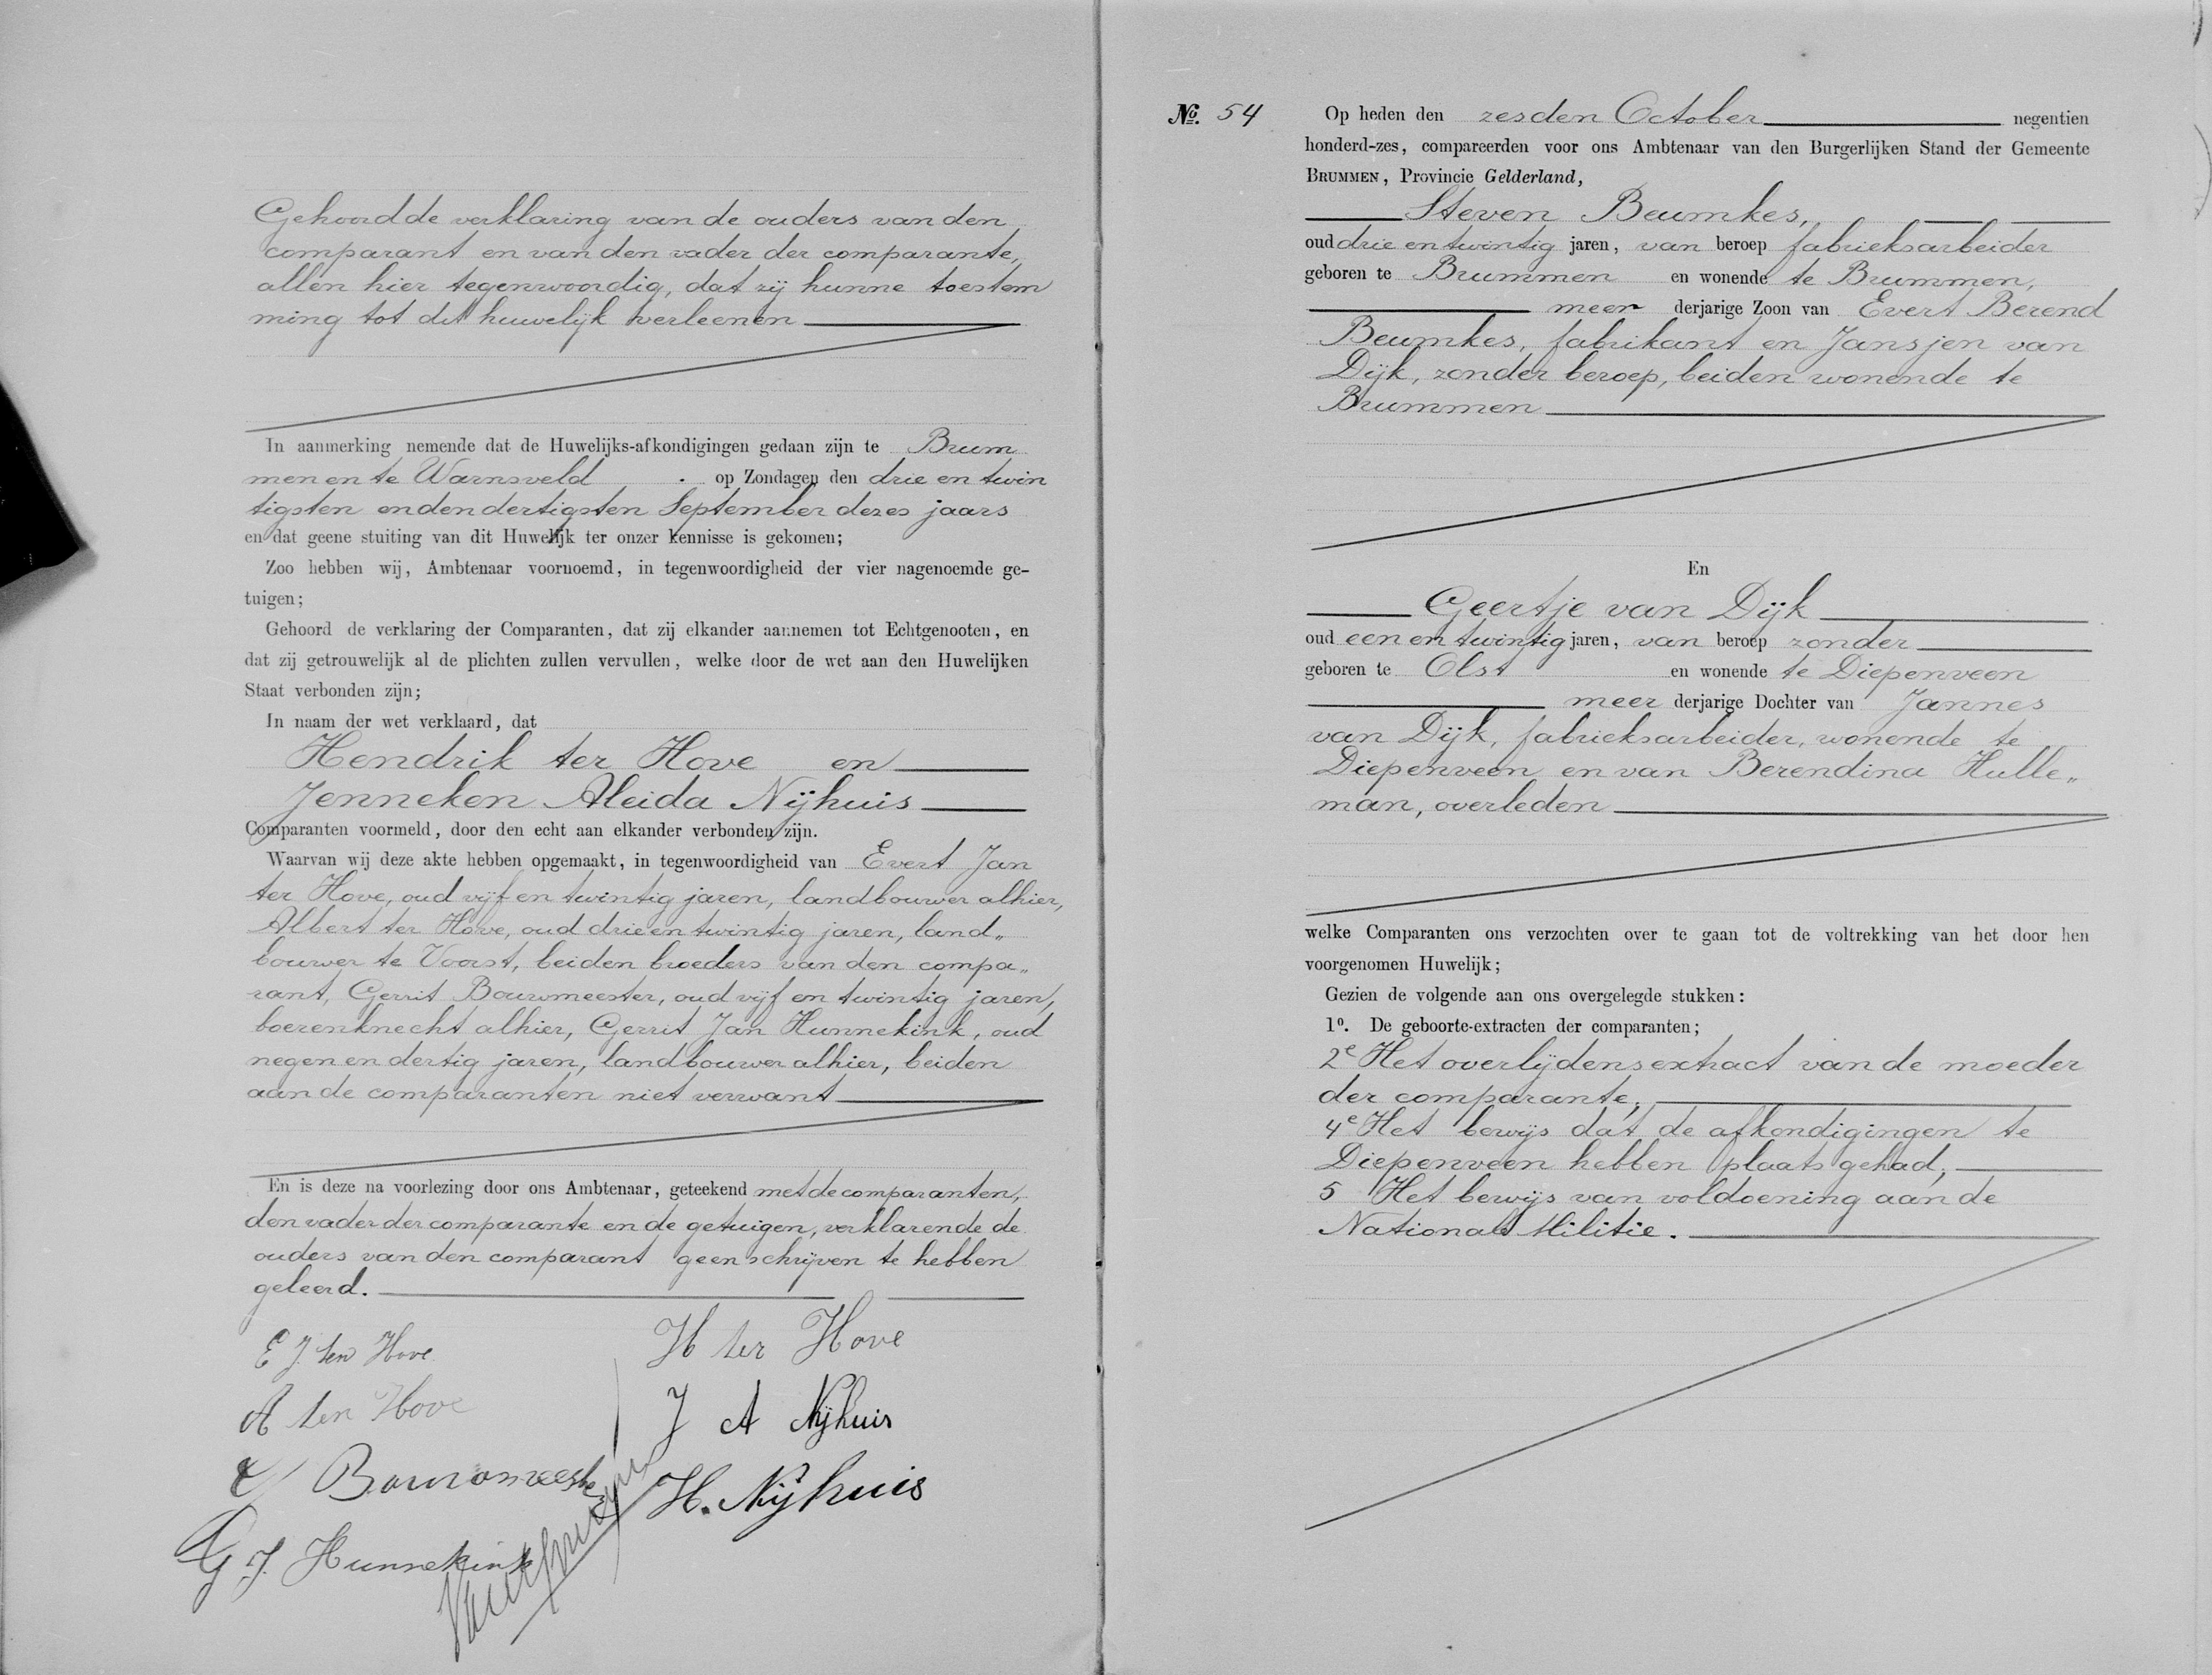 Gehoord de verklaring van de ouders van den
comparant en van den vader der comparante,
allen hier tegenwoordig, dat zij hunne toestem
ming tot dit huwelijk verleenen
In aanmerking nemende dat de Huwelijks-afkondigingen gedaan zijn te Brum
men en te Warnsveld op Zondagen den drie en twin
tigsten en den dertigsten September dezes jaars
en dat geene stuiting van dit Huwelijk ter onzer kennisse is gekomen;
Zoo hebben wij, Ambtenaar voornoemd, in tegenwoordigheid der vier nagenoemde ge-
tuigen;
Gehoord de verklaring der Comparanten, dat zij elkander aannemen tot Echtgenooten, en
dat zij getrouwelijk al de plichten zullen vervullen, welke door de wet aan den Huwelijken
Staat verbonden zijn;
In naam der wet verklaard, dat
Hendrik ter Hove en
Jenneken Aleida Nijhuis
Comparanten voormeld, door den echt aan elkander verbonden zijn.
Waarvan wij deze akte hebben opgemaakt, in tegenwoordigheid van Evert Jan
ter Hove, oud vijf en twintig jaren, landbouwer alhier,
Albert ter Hove, oud drie en twintig jaren, land„
bouwer te Voorst, beiden broeders van den compa„
rant, Gerrit Bouwmeester, oud vijf en twintig jaren,
boerenknecht alhier, Gerrit Jan Hunnekink, oud
negen en dertig jaren, landbouwer alhier, beiden
aan de comparanten niet verwant
En is deze na voorlezing door ons Ambtenaar, geteekend met de comparanten,
den vader der comparante en de getuigen, verklarende de
ouders van den comparant geen schrijven te hebben
geleerd.
E J. ter Hove
H ter Hove
A ter Hove
J A Nijhuis
G Bouwmeester
H. Nijhuis
G J. Hunnekink
No. 54
Op heden den zesden October negentien
honderd-zes, compareerden voor ons Ambtenaar van den Burgerlijken Stand der Gemeente
BRUMMEN, Provincie Gelderland,
Steven Beumkes,
oud drie en twintig jaren, van beroep fabrieksarbeider
geboren te Brummen en wonende te Brummen,
meer derjarige Zoon van Evert Berend
Beumkes, fabrikant en Jansjen van
Dijk, zonder beroep, beiden wonende te
Brummen
En
Geertje van Dijk
oud een en twintig jaren, van beroep zonder
geboren te Olst en wonende te Diepenveen
meer derjarige Dochter van Jannes
van Dijk, fabrieksarbeider, wonende te
Diepenveen en van Berendina Hulle„
man, overleden
welke Comparanten ons verzochten over te gaan tot de voltrekking van het door hen
voorgenomen Huwelijk;
Gezien de volgende aan ons overgelegde stukken:
1o. De geboorte-extracten der comparanten;
2e Het overlijdensextract van de moeder
der comparante;
4e Het bewijs dat de afkondigingen te
Diepenveen hebben plaats gehad;
5 Het bewijs van voldoening aan de
Nationale Militie.